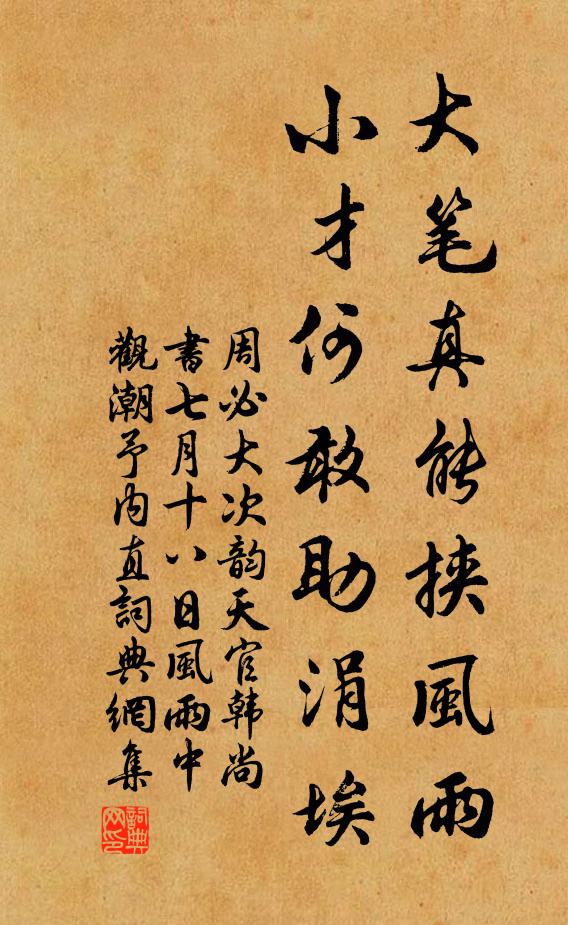 大笔真能挟風雨
小才何敢助涓埃
周必大次韵天官韩尚
書七月十八日風雨中
觀潮予内直詞典網集
詞典
网印